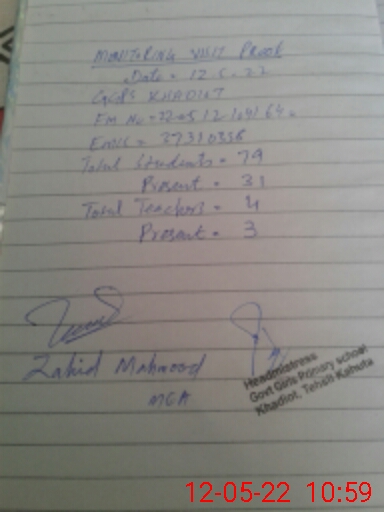 MONITORING VISIT PROOF
Date = 12.5.22
GGPS KHADIOT
Emis = 37310358
Total Students = 79
Present = 31
Total Teachers = 4
Present = 3
Zahid Mahmood
MEA
Headmistress
Govt Girls Primary school
Khadiot, Tehsil Kahuta
12-05-22 10:59